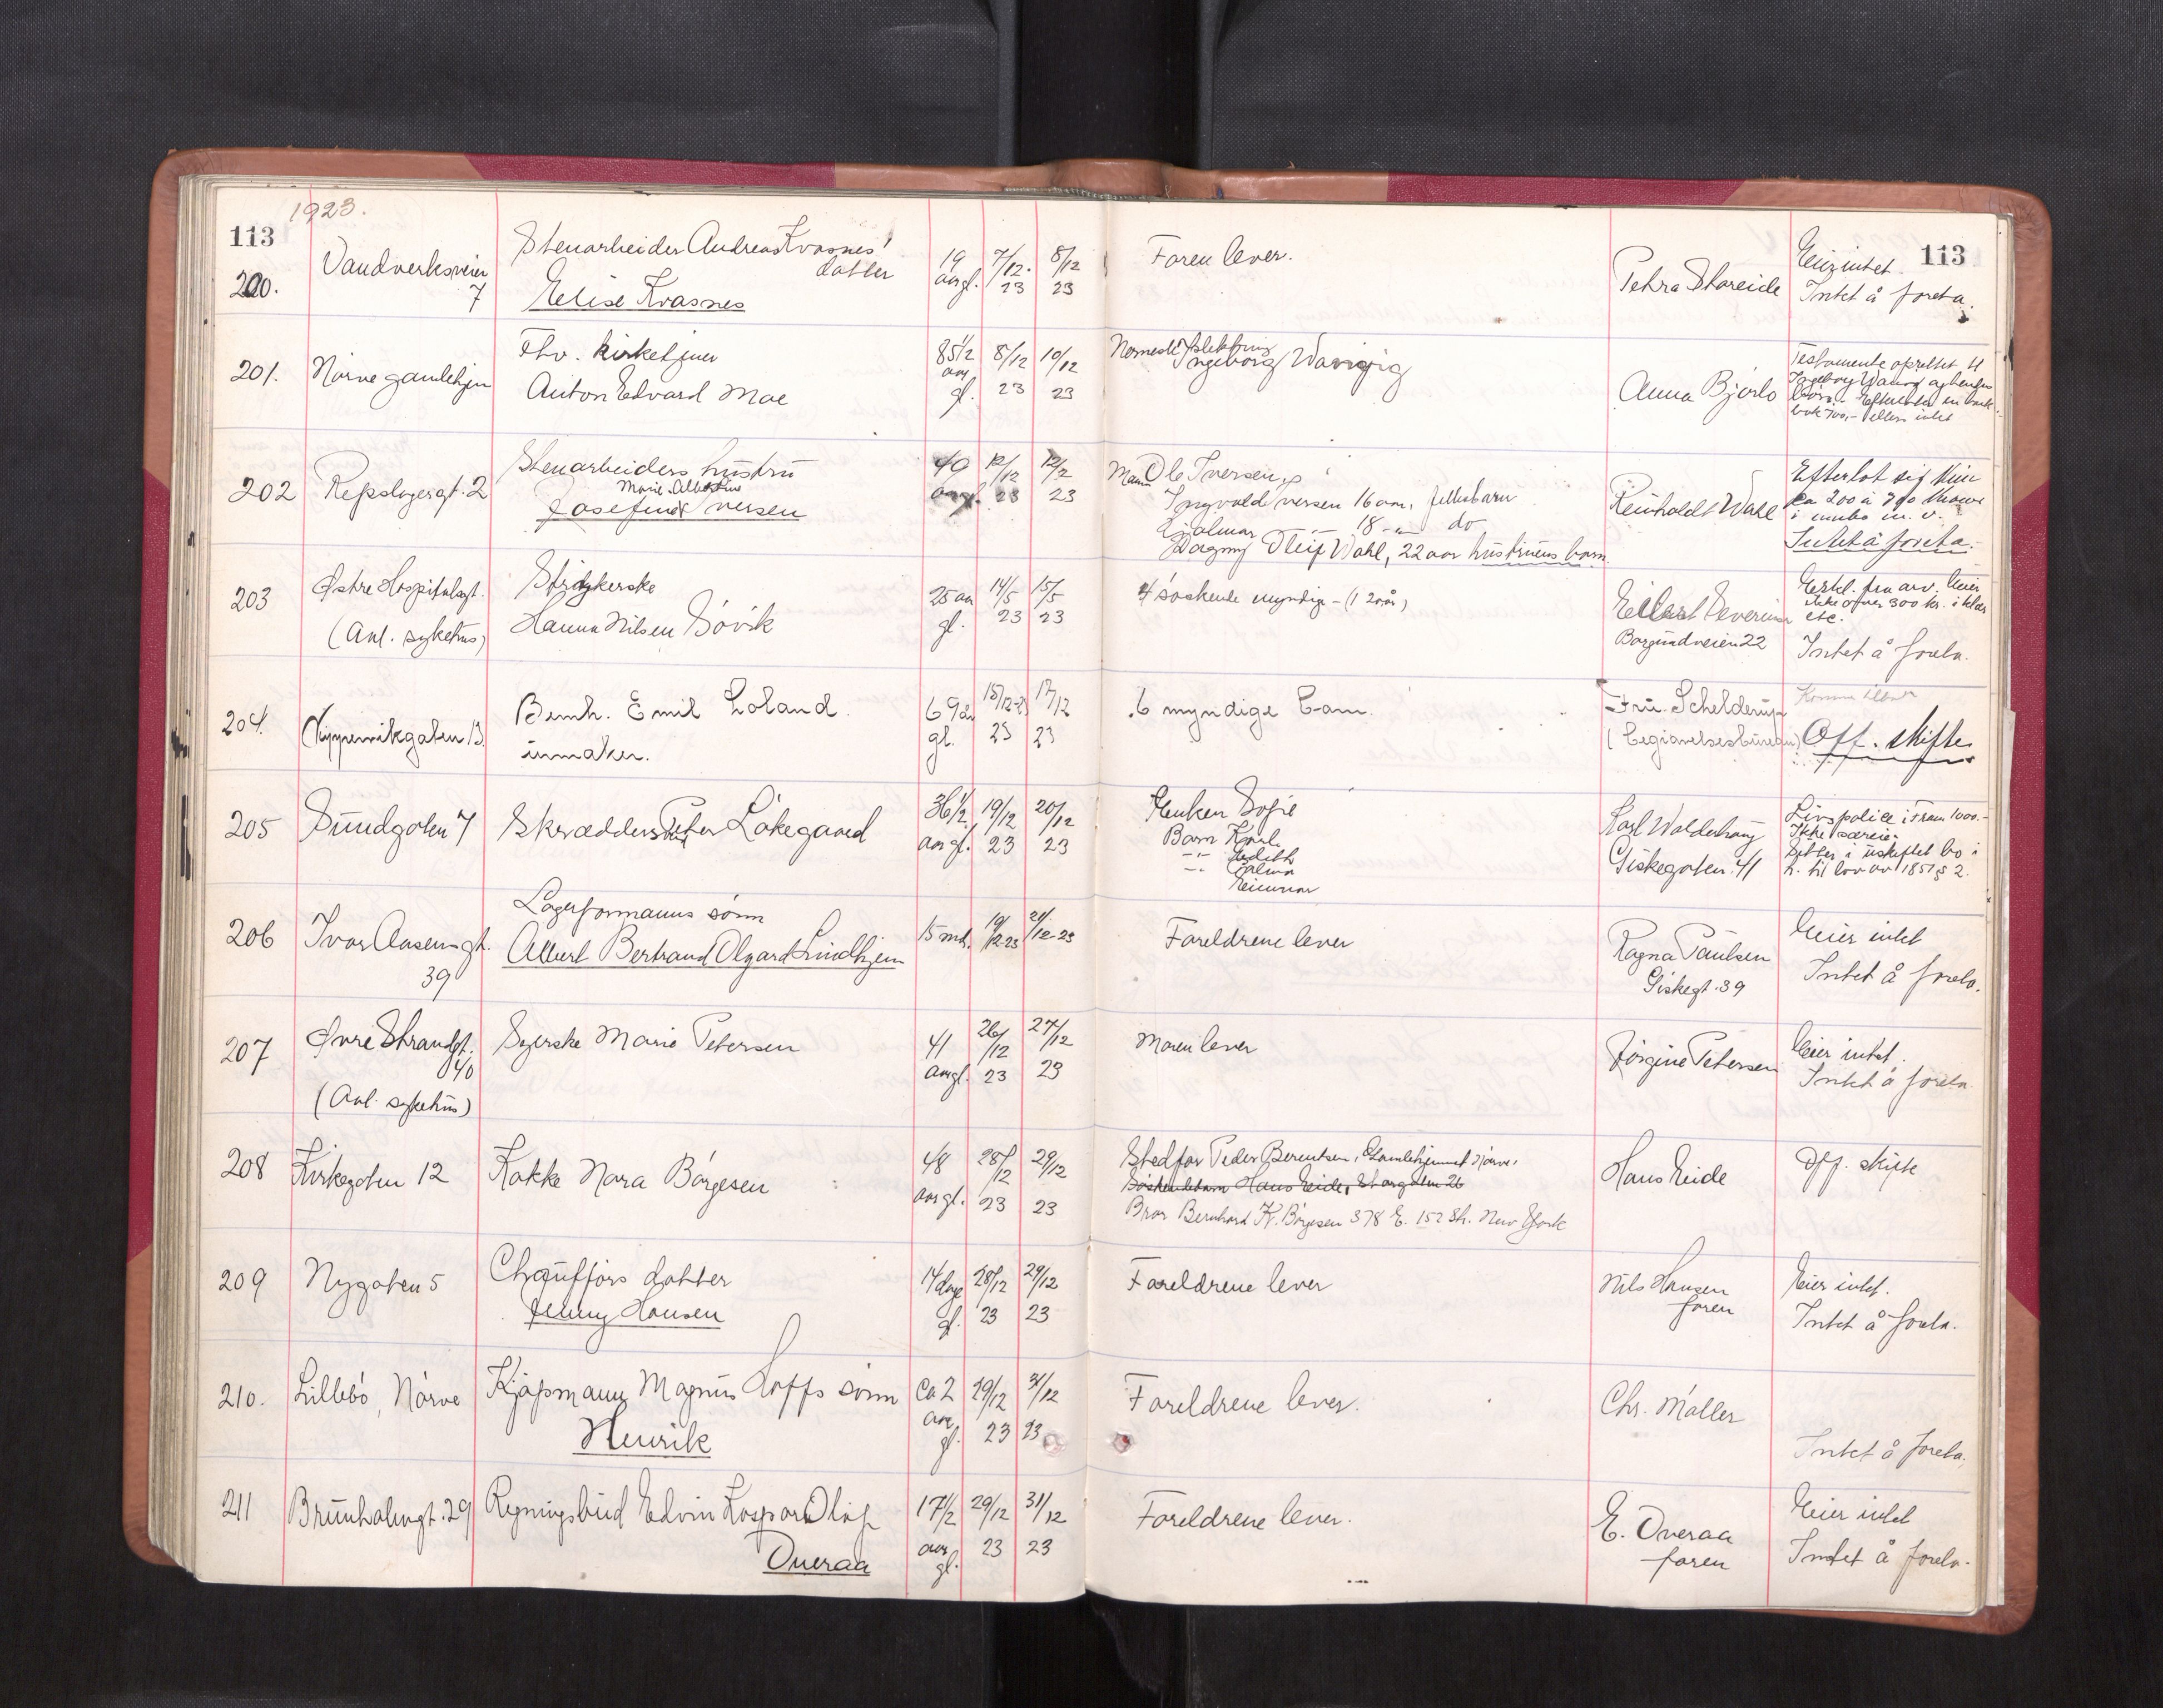 1923.
113
113
200.
Vandverksveien
7
Stenarbeider Andreas Kvasnes'
datter
Elise Kvasnes
19
aar gl.
7/12.
23
8/12
23
Faren lever.
Petra Storeide
Eier intet.
Intet å foreta.
201.
Nørve gamlehjem
Fhv. kirketjener
Anton Edvard Moe
85 1/2
aar
gl.
8/12
23
10/12
23
Nermeste slektning
Ingeborg
Anna Bjørlo
Testamente oprettet til
Ingeborg
Efterlater en bank-
bok 700,- ellers intet
202
Repslagergt. 2
Stenarbeiders hustru
Marie Albertine
Josefine Iversen
40
aar gl.
12/12
23
12/12
23
Mann Ole Iversen,
Ingvald Iversen 16 aar, fellesbarn
Hjalmar —"— 18 -"- do
Dagny Oleif Wahl, 22 aar hustruens barn
Reinholdt Wahl
Efterlot sig kun
ca 200 à 300 kroner
i innbo m. v.
Intet å foreta.
203
Østre Hospitalsgt.
(Aal. sykehus)
Strykerske
Hanna Nilsen Søvik
25 aar
gl.
14/5
23
15/5
23
4 søskende myndige - (1 20 år)
Eilert Severinsen
Borgundveien 22
Erkl. fra arv. Eier
ikke over 300 kr. i klær
etc.
Intet å foreta.
204.
Kipervikgaten 13.
Bernh. Emil Loland.
urmaker.
69 år
gl.
15/12
23
17/12
23
6 myndige barn.
Fru Schelderup
(Begravelsesbureau)
Off. skifte
205
Sundgaten 7
Skrædder Peter Løkegaard
36 1/2
aar gl.
19/12
23
20/12
23
Enken Sofie
Barn Karl
-"- Judith
-"- Hjalmar
Einar
Karl Walderhaug
Giskegaten 41
Livspolice i Fram 1000.-
Ikke særeie.
Sitter i uskiftet bo i
h. til lov av 1851 § 2.
206
Ivar Aasensgt.
39
Lagerformanns sønn
Albert Bertrand Olgard Lindhjem
15 md.
19/12-23
21/12-23
Foreldrene lever
Ragna Paulsen
Giskegt. 39
Eier intet
Intet å foreta.
207
Øvre Strandgt.
40
(Aal. sykehus)
Syerske Marie Petersen
41
aar gl.
26/12
23
27/12
23
Moren lever
Jørgine Petersen
Eier intet.
Intet å foreta.
208
Kirkegaten 12
Kokke Nora Børgesen
48
aar gl.
28/12
23
29/12
23
Stedfar Peder Berentsen, Gamlehjemmet Nørve.
Søskenbarn Hans Eide, Storgaten 26
Bror Bernhard K. Børgesen 378 E. 152 Sh. New York
Hans Eide
Off. skifte
209
Nygaten 5
Chaufførs datter
Jenny Hansen
14 dage
gl.
28/12
23
29/12
23
Foreldrene lever
Nils Hansen
faren
Eier intet.
Intet å foreta.
210.
Lillebø, Nørve
Kjøpmann Magnus Hoffs sønn
Henrik
Ca 2
aar
gl.
29/12
23
31/12
23
Foreldrene lever.
Chr. Møller
Intet å foreta.
211
Brunholmgt. 29
Regningsbud Edvin Kaspar Olaf
Overaa
17 1/2
aar
gl.
29/12
23
31/12
23
Foreldrene lever.
E. Overaa
faren
Eier intet
Intet å foreta.